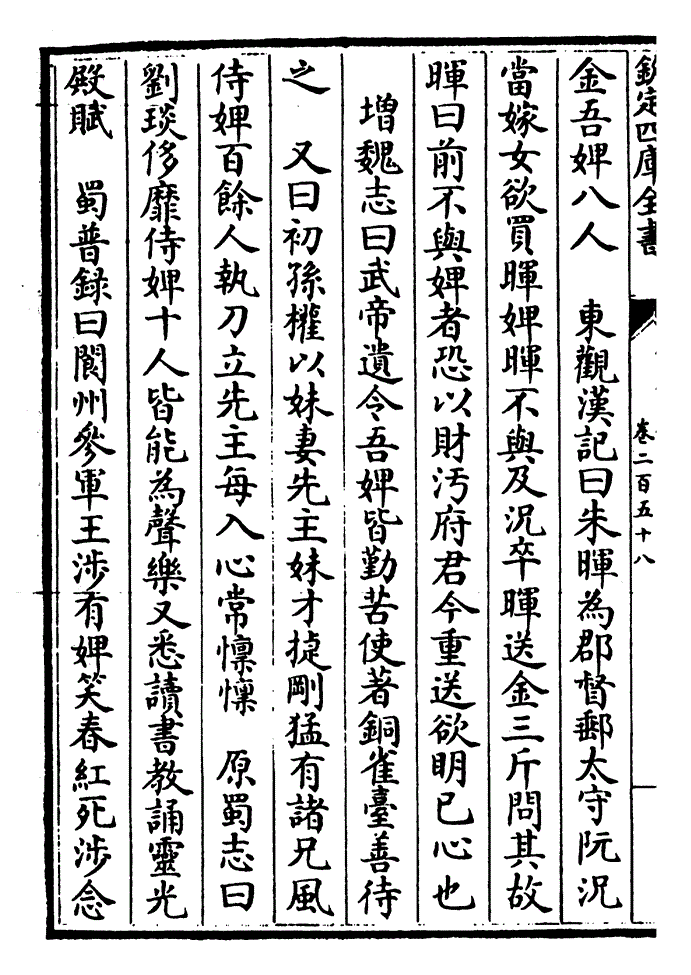 欽定四庫全書
卷二百五十八
金吾婢八人　東觀漢記曰朱暉為郡督郵太守阮況
當嫁女欲買暉婢暉不與及況卒暉送金三斤問其故
暉曰前不與婢者恐以財汚府君今重送欲明已心也
增魏志曰武帝遺令吾婢皆勤苦使著銅雀臺善待
之　又曰初孫權以妹妻先主妹才㨗剛猛有諸兄風
侍婢百餘人執刀立先主每入心常懍懍　原蜀志曰
劉琰侈靡侍婢十人皆能為聲樂又悉讀書教誦靈光
殿賦　蜀普錄曰閬州參軍王涉有婢笑春紅死涉念